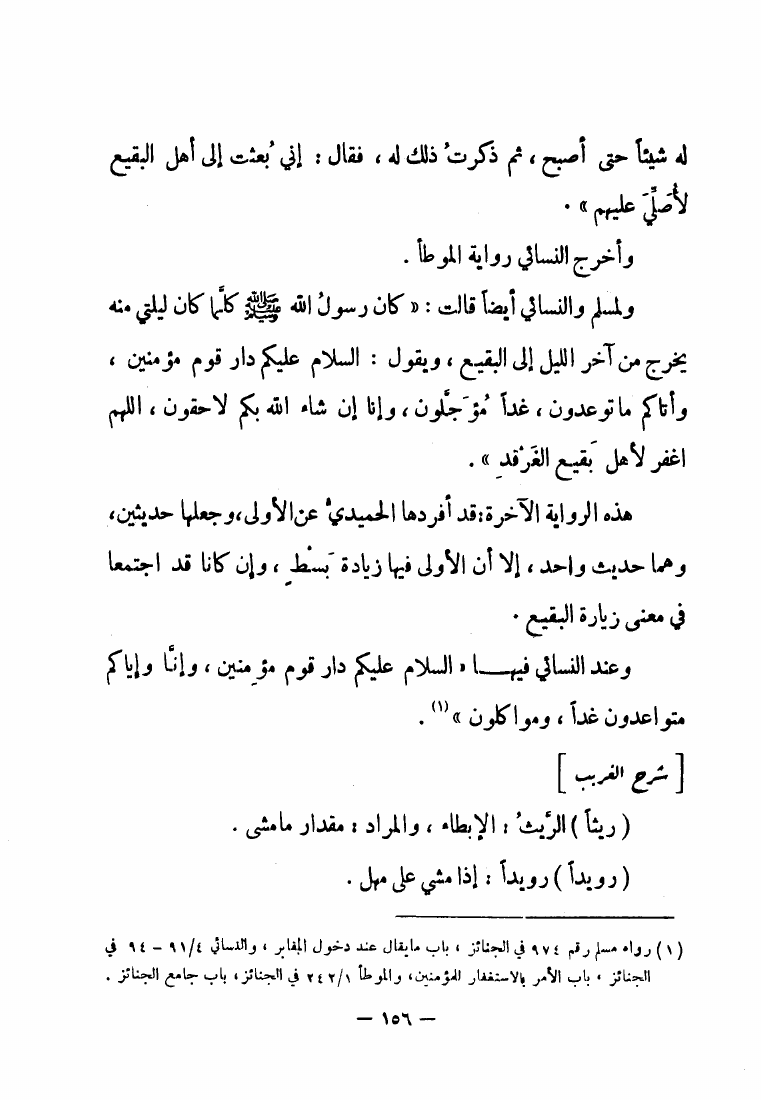 له شيئاً حتى أصبح ، ثم ذكرتُ ذلك له ، فقال : إني بُعثت إلى أهل البقيع
لأُصَلِّيَ عليهم » .
وأخرج النسائي رواية الموطأ .
ولمسلم والنسائي أيضاً قالت : « كان رسولُ الله ﷺ كلَّما كان ليلتي منه
يخرج من آخر الليل إلى البقيع ، ويقول : السلام عليكم دار قوم مؤمنين ،
وأتاكم ما توعدون ، غداً مُؤَجَّلون ، وإنا إن شاء الله بكم لاحقون ، اللهم
اغفر لأهل بَقيع الغَرْقدِ » .
هذه الرواية الآخرة : قد أفردها الحميديُّ عن الأولى ، وجعلها حديثين ،
وهما حديث واحد ، إلا أن الأولى فيها زيادة بَسْطٍ ، وإن كانا قد اجتمعا
في معنى زيارة البقيع .
وعند النسائي فيهـا « السلام عليكم دار قوم مؤمِنين ، وإنَّا وإياكم
متواعدون غداً ، ومواكلون » (١) .
[ شرح الغريب ]
( ريثاً ) الرَّيثُ : الإبطاء ، والمراد : مقدار مامشى .
( رويداً ) رويداً : إذا مشي على مهل .
(١) رواه مسلم رقم ٩٧٤ في الجنائز ، باب مايقال عند دخول المقابر ، والنسائي ٩١/٤ – ٩٤ في
الجنائز ، باب الأمر بالاستغفار للمؤمنين، والموطأ ٢٤٢/١ في الجنائز ، باب جامع الجنائز .
– ١٥٦ –